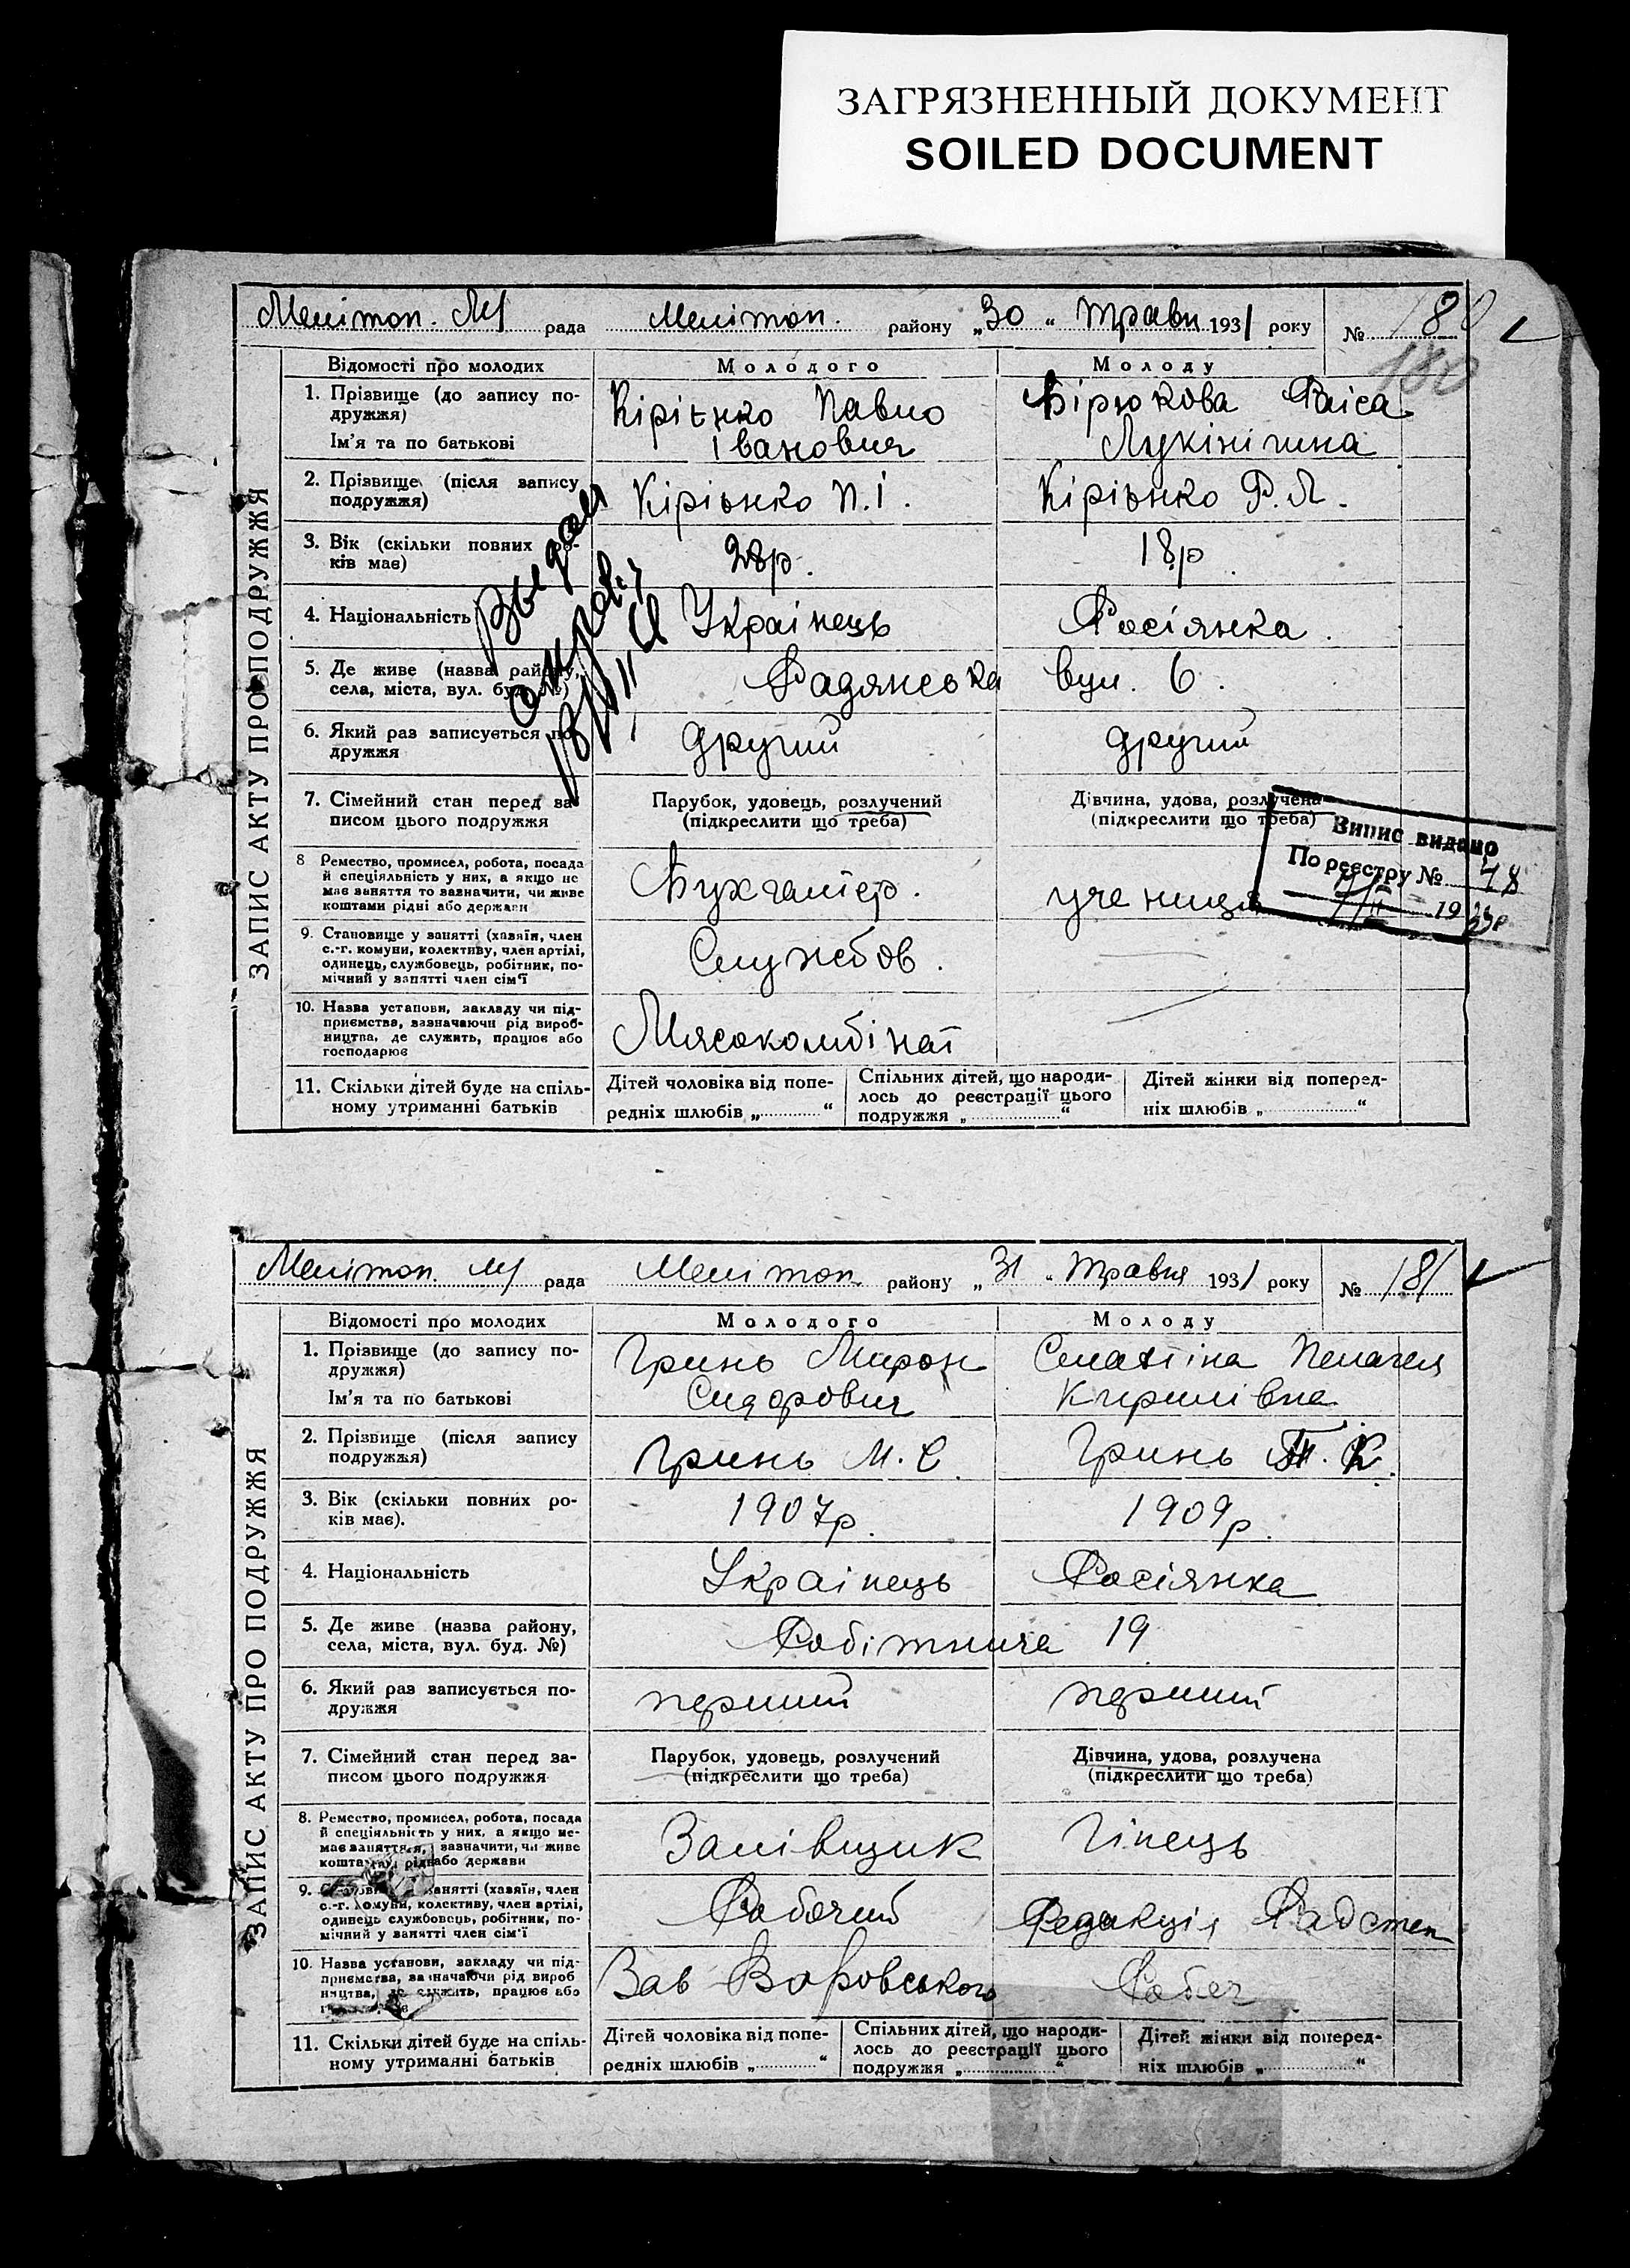 ЗАГРЯЗНЕННЫЙ ДОКУМЕНТ
SOILED DOCUMENT
Мелітоп. М/ рада Мелітоп. району „30“ Травн 1931 року № 180
180
ЗАПИС АКТУ ПРО ПОДРУЖЖЯ
Відомості про молодих Молодого Молоду
1. Прізвище (до запису по-
дружжя)
Ім'я та по батькові
Кірієнко Павло
Іванович
Бірюкова Раіса
Лукінічина
2. Прізвище (після запису
подружжя)
Кірієнко П.І.
Кірієнко Р.Л.
3. Вік (скільки повних ро-
ків має)
28р.
18р
4. Національність
Украінець
Росіянка.
5. Де живе (назва району,
села, міста, вул. буд. №)
Радянська вул. 6.
6. Який раз записується по-
дружжя
другий
другий
7. Сімейний стан перед за-
писом цього подружжя
Парубок, удовець, розлучений
(підкреслити що треба)
Дівчина, удова, розлучена
(підкреслити що треба)
Випис видано
По реєстру № 48
19
8 Ремество, промисел, робота, посада
й спеціяльність у них, а якщо не
має заняття то зазначити, чи живе
коштами рідні або держави
Бухгалтер.
учениця
9. Становище у занятті (хазяїн, член
с.-г. комуни, колективу, член артілі,
одинець, службовець, робітник, по-
мічний у занятті член сім'ї
Службов.
10. Назва установи, закладу чи під-
приємства, зазначаючи рід вироб-
ництва, де служить, працює або
господарює
Мясокомбінат
11. Скільки дітей буде на спіль-
ному утриманні батьків
Дітей чоловіка від попе-
редніх шлюбів „............“
Спільних дітей, що народи-
лось до реєстрації цього
подружжя „............“
Дітей жінки від поперед-
ніх шлюбів „............“
Мелітоп. М/ рада Мелітоп. району „31“ Травня 1931 року № 181
ЗАПИС АКТУ ПРО ПОДРУЖЖЯ
Відомості про молодих Молодого Молоду
1. Прізвище (до запису по-
дружжя)
Ім'я та по батькові
Гринь Мирон
Сидорович
Пелагея
Кирилівна
2. Прізвище (після запису
подружжя)
Гринь М.С
Гринь П. К.
3. Вік (скільки повних ро-
ків має).
1907р.
1909р.
4. Національність
Украінець
Росіянка
5. Де живе (назва району,
села, міста, вул. буд. №)
Робітнича 19
6. Який раз записується по-
дружжя
перший
перший
7. Сімейний стан перед за-
писом цього подружжя
Парубок, удовець, розлучений
(підкреслити що треба)
Дівчина, удова, розлучена
(підкреслити що треба)
8. Ремество, промисел, робота, посада
й спеціяльність у них, а якщо не-
має заняття, зазначити, чи живе
коштами рідні або держави
Залівщик
9. Становище у занятті (хазяїн, член
с.-г. комуни, колективу, член артілі,
одинець службовець, робітник, по-
мічний у занятті член сім'ї
Рабочий
Редакція Радстеп
10. Назва установи, закладу чи під-
приємства, зазначаючи рід вироб
ництва, де служить, працює або
Зав Воровського
Рабоч
11. Скільки дітей буде на спіль-
ному утриманні батьків
Дітей чоловіка від попе-
редніх шлюбів „............“
Спільних дітей, що народи-
лось до реєстрації цього
подружжя „............“
Дітей жінки від поперед-
ніх шлюбів „............“